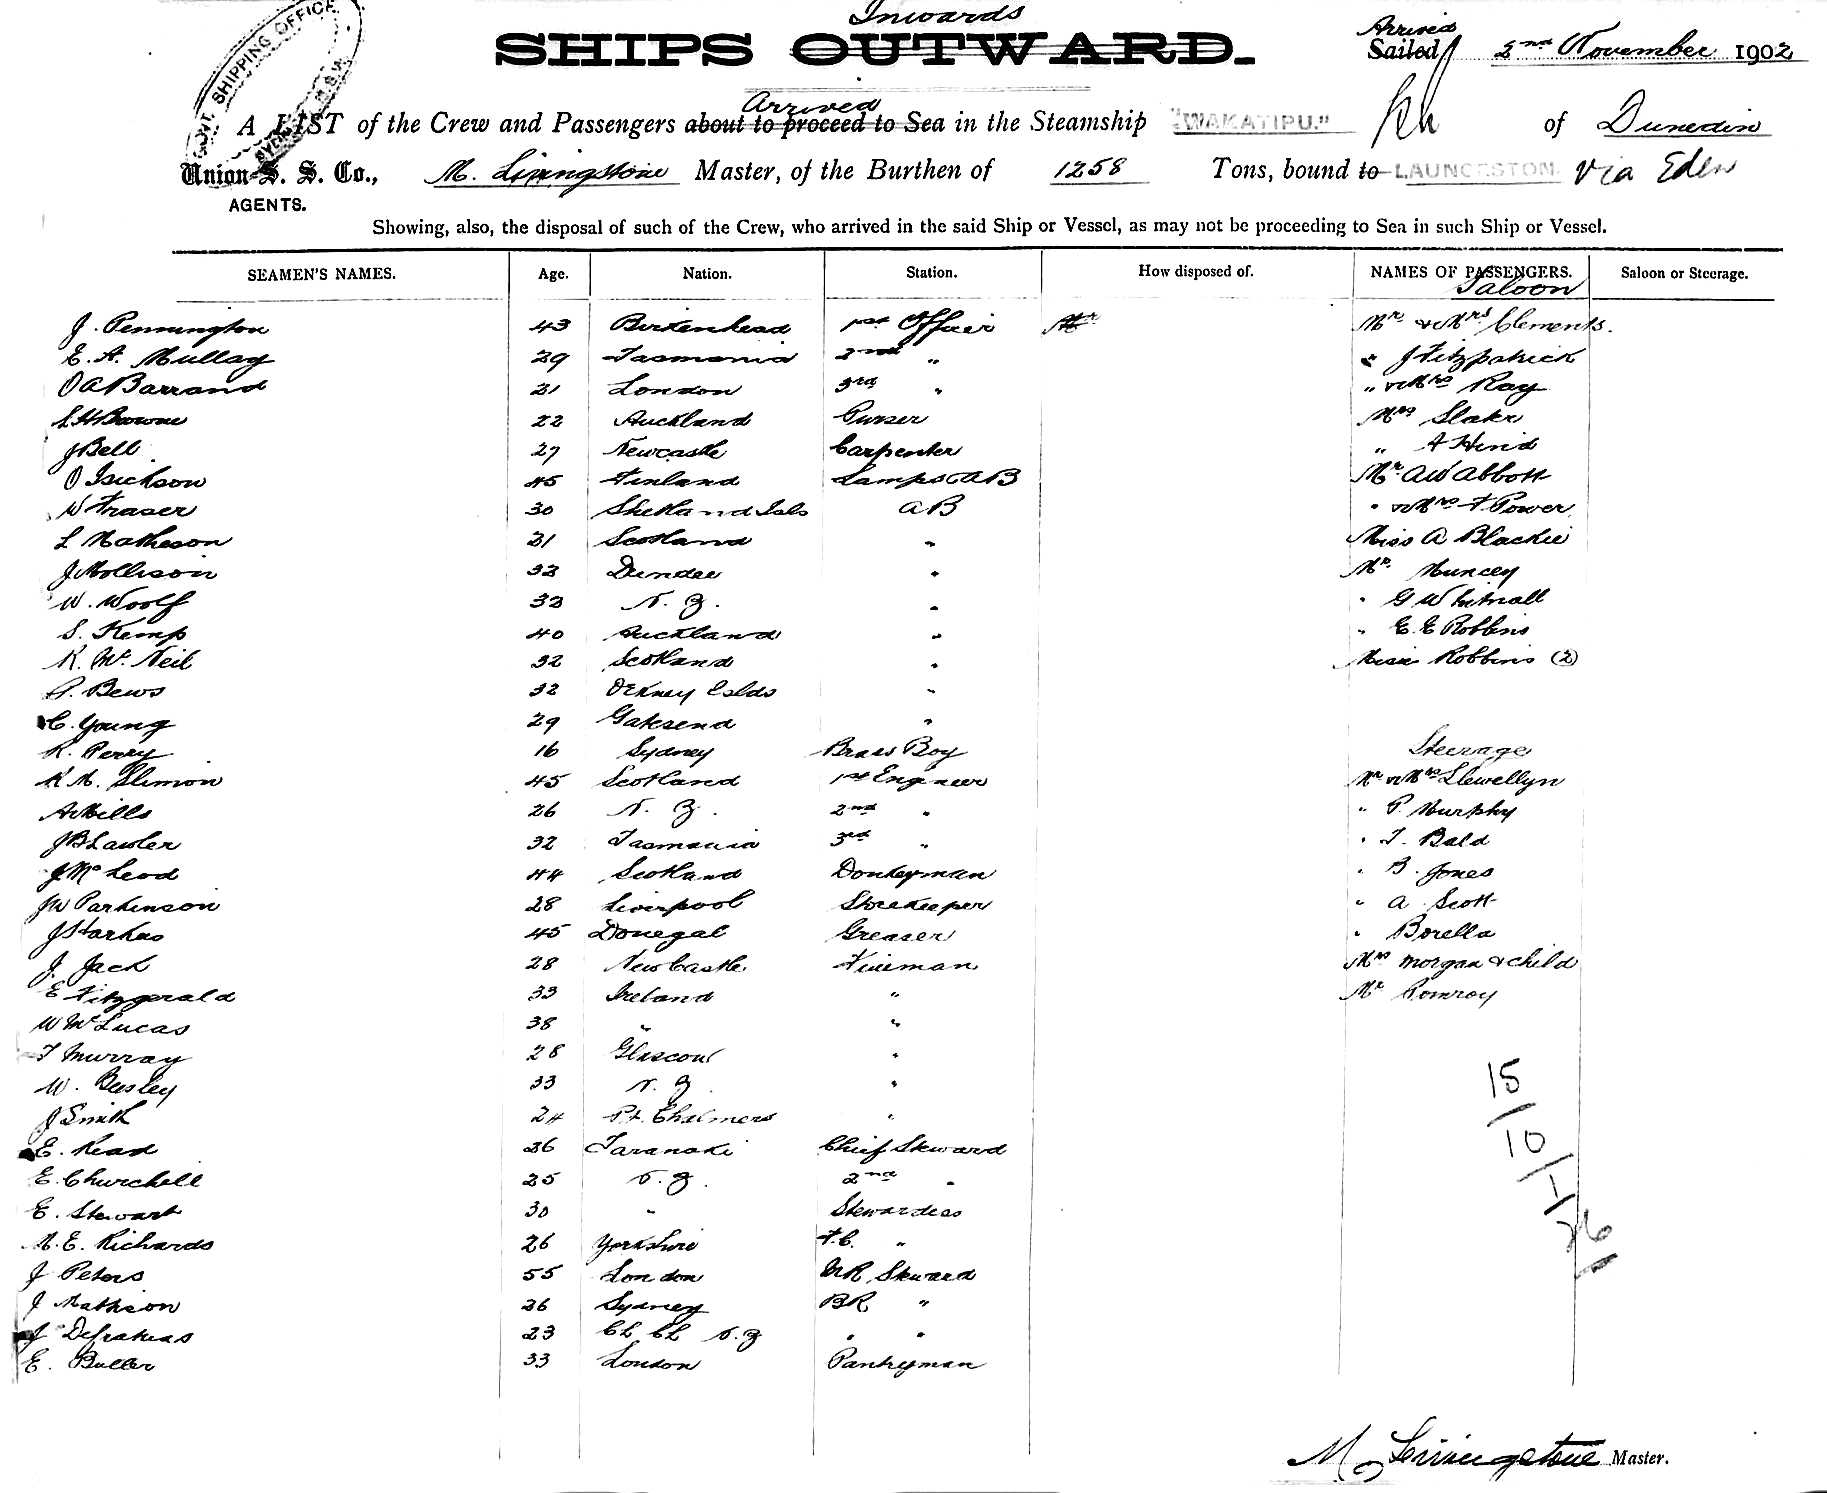 Inwards
SHIPS OUTWARD.
Arrived
Sailed 2nd November 1902
GOVT. SHIPPING OFFICE
SYDNEY N.S.W.
Arrived
A LIST of the Crew and Passengers about to proceed to Sea in the Steamship "WAKATIPU." of Dunedin
Union S. S. Co., M. Livingstone Master, of the Burthen of 1258 Tons, bound to LAUNCESTON. via Eden
AGENTS.
Showing, also, the disposal of such of the Crew, who arrived in the said Ship or Vessel, as may not be proceeding to Sea in such Ship or Vessel.
SEAMEN'S NAMES. Age. Nation. Station. How disposed of. NAMES OF PASSENGERS. Saloon or Steerage.
Saloon
J. Pennington 43 Birkenhead 1st Officer Mr & Mrs Clements.
E. A. Mullay 29 Tasmania 2nd " " J Fitzpatrick
O A Barrand 21 London 3rd " " & Mrs Ray
S H Browne 22 Auckland Purser Mrs Slater
J Bell 27 Newcastle Carpenter " A Hind
O Isickson 45 Finland Lamps & AB Mr A W Abbott
W Fraser 30 Shetland Isls AB " & Mrs F Power
L Matheson 21 Scotland " Miss A Blackie
J Mollison 32 Dundee " Mr Muncey
W. Woolf 33 N. Z. " " G Whitnall
S. Kemp 40 Auckland " " E. E Robbins
R. Mc Neil 32 Scotland " Miss Robbins (2)
A. Bews 32 Orkney Eslds "
C. Young 29 Gatesend "
R. Perry 16 Sydney Brass Boy Steerage
R M. Slimon 45 Scotland 1st Engineer Mr & Mrs Llewellyn
A Mills 26 N. Z. 2nd " " P. Murphy
J B Lawler 32 Tasmania 3rd " " T. Bald
J Mc Leod 44 Scotland Donkeyman " B. Jones
J W Parkinson 28 Liverpool Storekeeper " A Scott
J Harkas 45 Donegal Greaser " Borella
J. Jack 28 NewCastle Fireman Mrs Morgan & Child
E Fitzgerald 33 Ireland " Mr Pomroy
W Mc Lucas 38 " "
T Murray 28 Glascow "
W. Besley 33 N. Z. "
J Smith 24 Pt Chalmers "
E. Read 36 Taranaki Chief Steward
E. Churchill 25 N. Z. 2nd "
E. Stewart 30 " Stewardess
M. E. Richards 26 Yorkshire F. C. "
J Peters 55 London MR Steward
J Mathison 26 Sydney BR "
J 23 Ch Ch N. Z " "
E. Buller 33 London Pantryman
15/
10/
1
26/
M Livingstone Master.